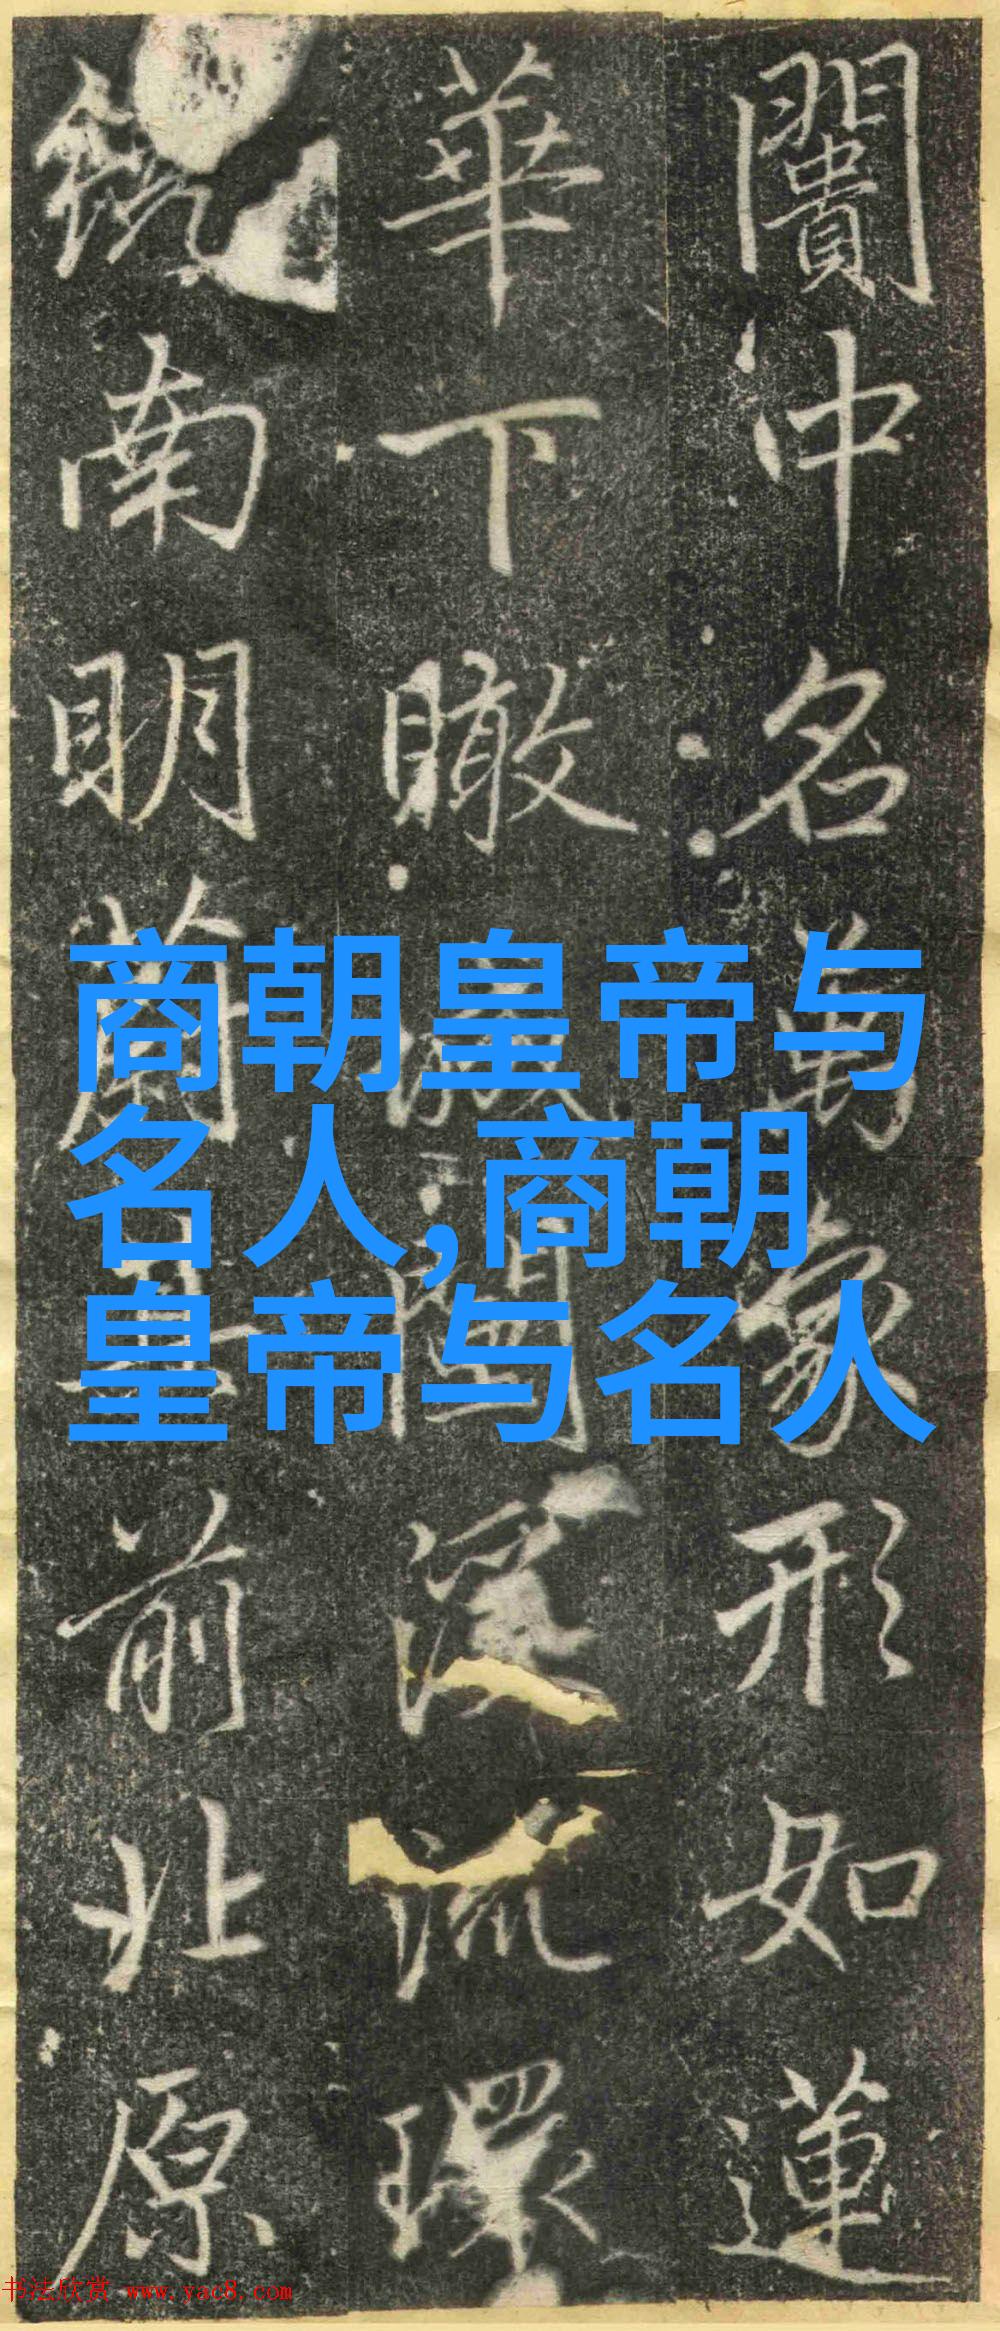 闠中名萬象形如蓮
華下瞰閻浮流環
鏡南明蘭臺前北原
商朝皇帝与
名人,商朝
皇帝与名人
书法欣赏 www.yac8.com